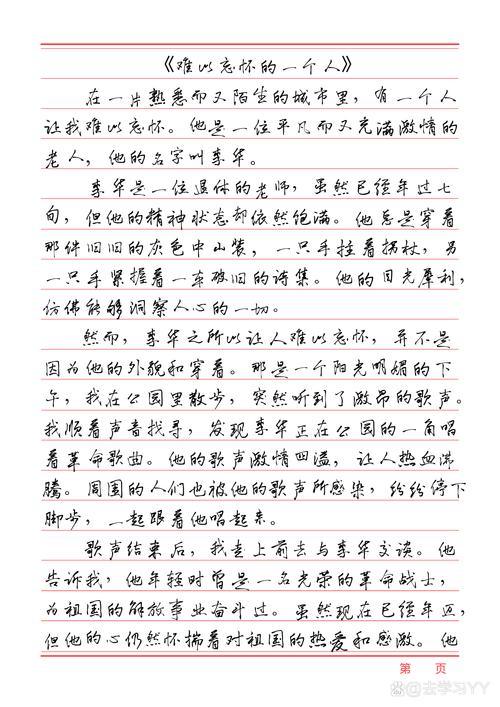 《难以忘怀的一个人》
在一片熟悉而又陌生的城市里，有一个人
让我难以忘怀。他是一位平凡而又充满激情的
老人，他的名字叫李华。
李华是一位退休的老师，虽然已经年过七
旬，但他的精神状态却依然饱满。他总是穿着
那件旧旧的灰色中山装，一只手拄着拐杖，另
一只手紧握着一本破旧的诗集。他的目光犀利，
仿佛能够洞察人心的一切。
然而，李华之所以让人难以忘怀，并不是
因为他的外貌和穿着。那是一个阳光明媚的下
午，我在公园里散步，突然听到了激昂的歌声。
我顺着声音找寻，发现李华正在公园的一角唱
着革命歌曲。他的歌声激情四溢，让人热血沸
腾。周围的人们也被他的歌声所感染，纷纷停下
脚步，一起跟着他唱起来。
歌声结束后，我走上前去与李华交谈。他
告诉我，他年轻时曾是一名光荣的革命战士，
为祖国的解放事业奋斗过。虽然现在已经年迈，
但他的心仍然怀揣着对祖国的热爱和感激。他
第 页
去学习YY